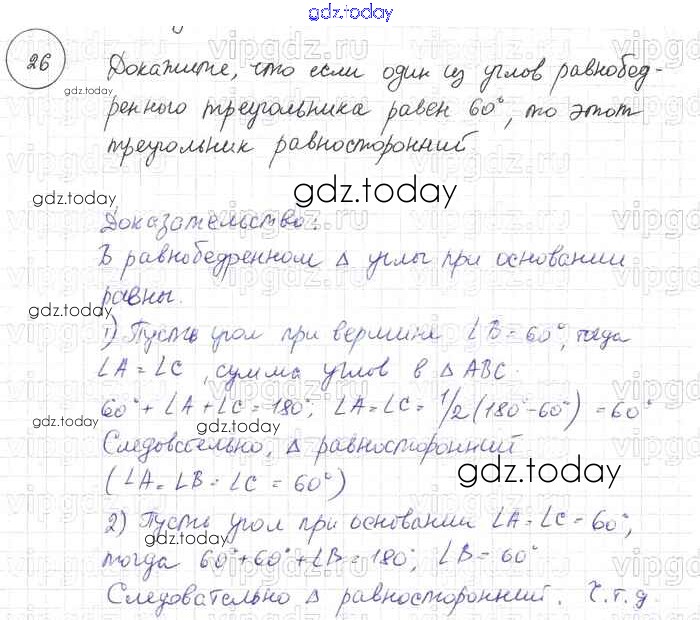 gdz.today
26
Докажите, что если один из углов равнобед-
gdz.today
ренного треугольника равен 60°, то этот
треугольник равносторонний
gdz.today
Доказательство:
В равнобедренном △ углы при основании
равны.
gdz.today
1) Пусть угол при вершине ∠B = 60°, тогда
∠A = ∠C, сумма углов в △ABC.
60° + ∠A + ∠C = 180°; ∠A = ∠C = 1/2 (180° - 60°) = 60°
gdz.today
Следовательно, △ равносторонний
gdz.today
(∠A = ∠B = ∠C = 60°)
2) Пусть угол при основании ∠A = ∠C = 60°,
тогда 60° + 60° + ∠B = 180°; ∠B = 60°
gdz.today
Следовательно △ равносторонний. Ч.т.д.